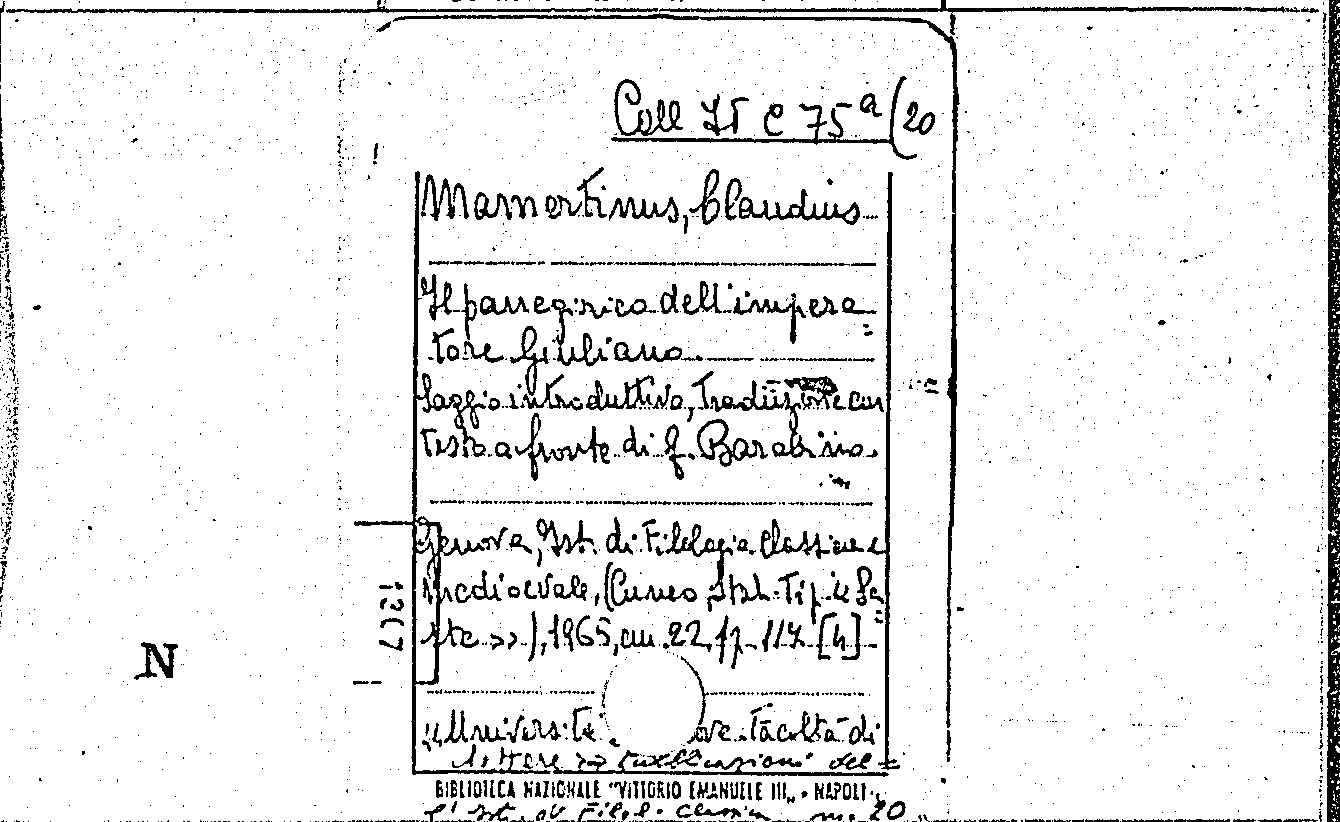 Coll It C 75 a (20
Mamertinus, Claudius
Il panegirico dell'impera=
tore Giuliano.
Saggio introduttivo, traduzione con
testo a fronte di G. Barabino.
Genova, Ist. di Filologia Classica e
medioevale, (Cuneo, Stab. Tip. « Sa=
ste »), 1965, cm. 22, pp. 117 [4]
1307
N
« Universita ova. Facoltà di
Lettere » Pubblicazioni del=
BIBLIOTECA NAZIONALE "VITTORIO EMANUELE III" - NAPOLI
l' Ist. di Filol. Classica n. 20